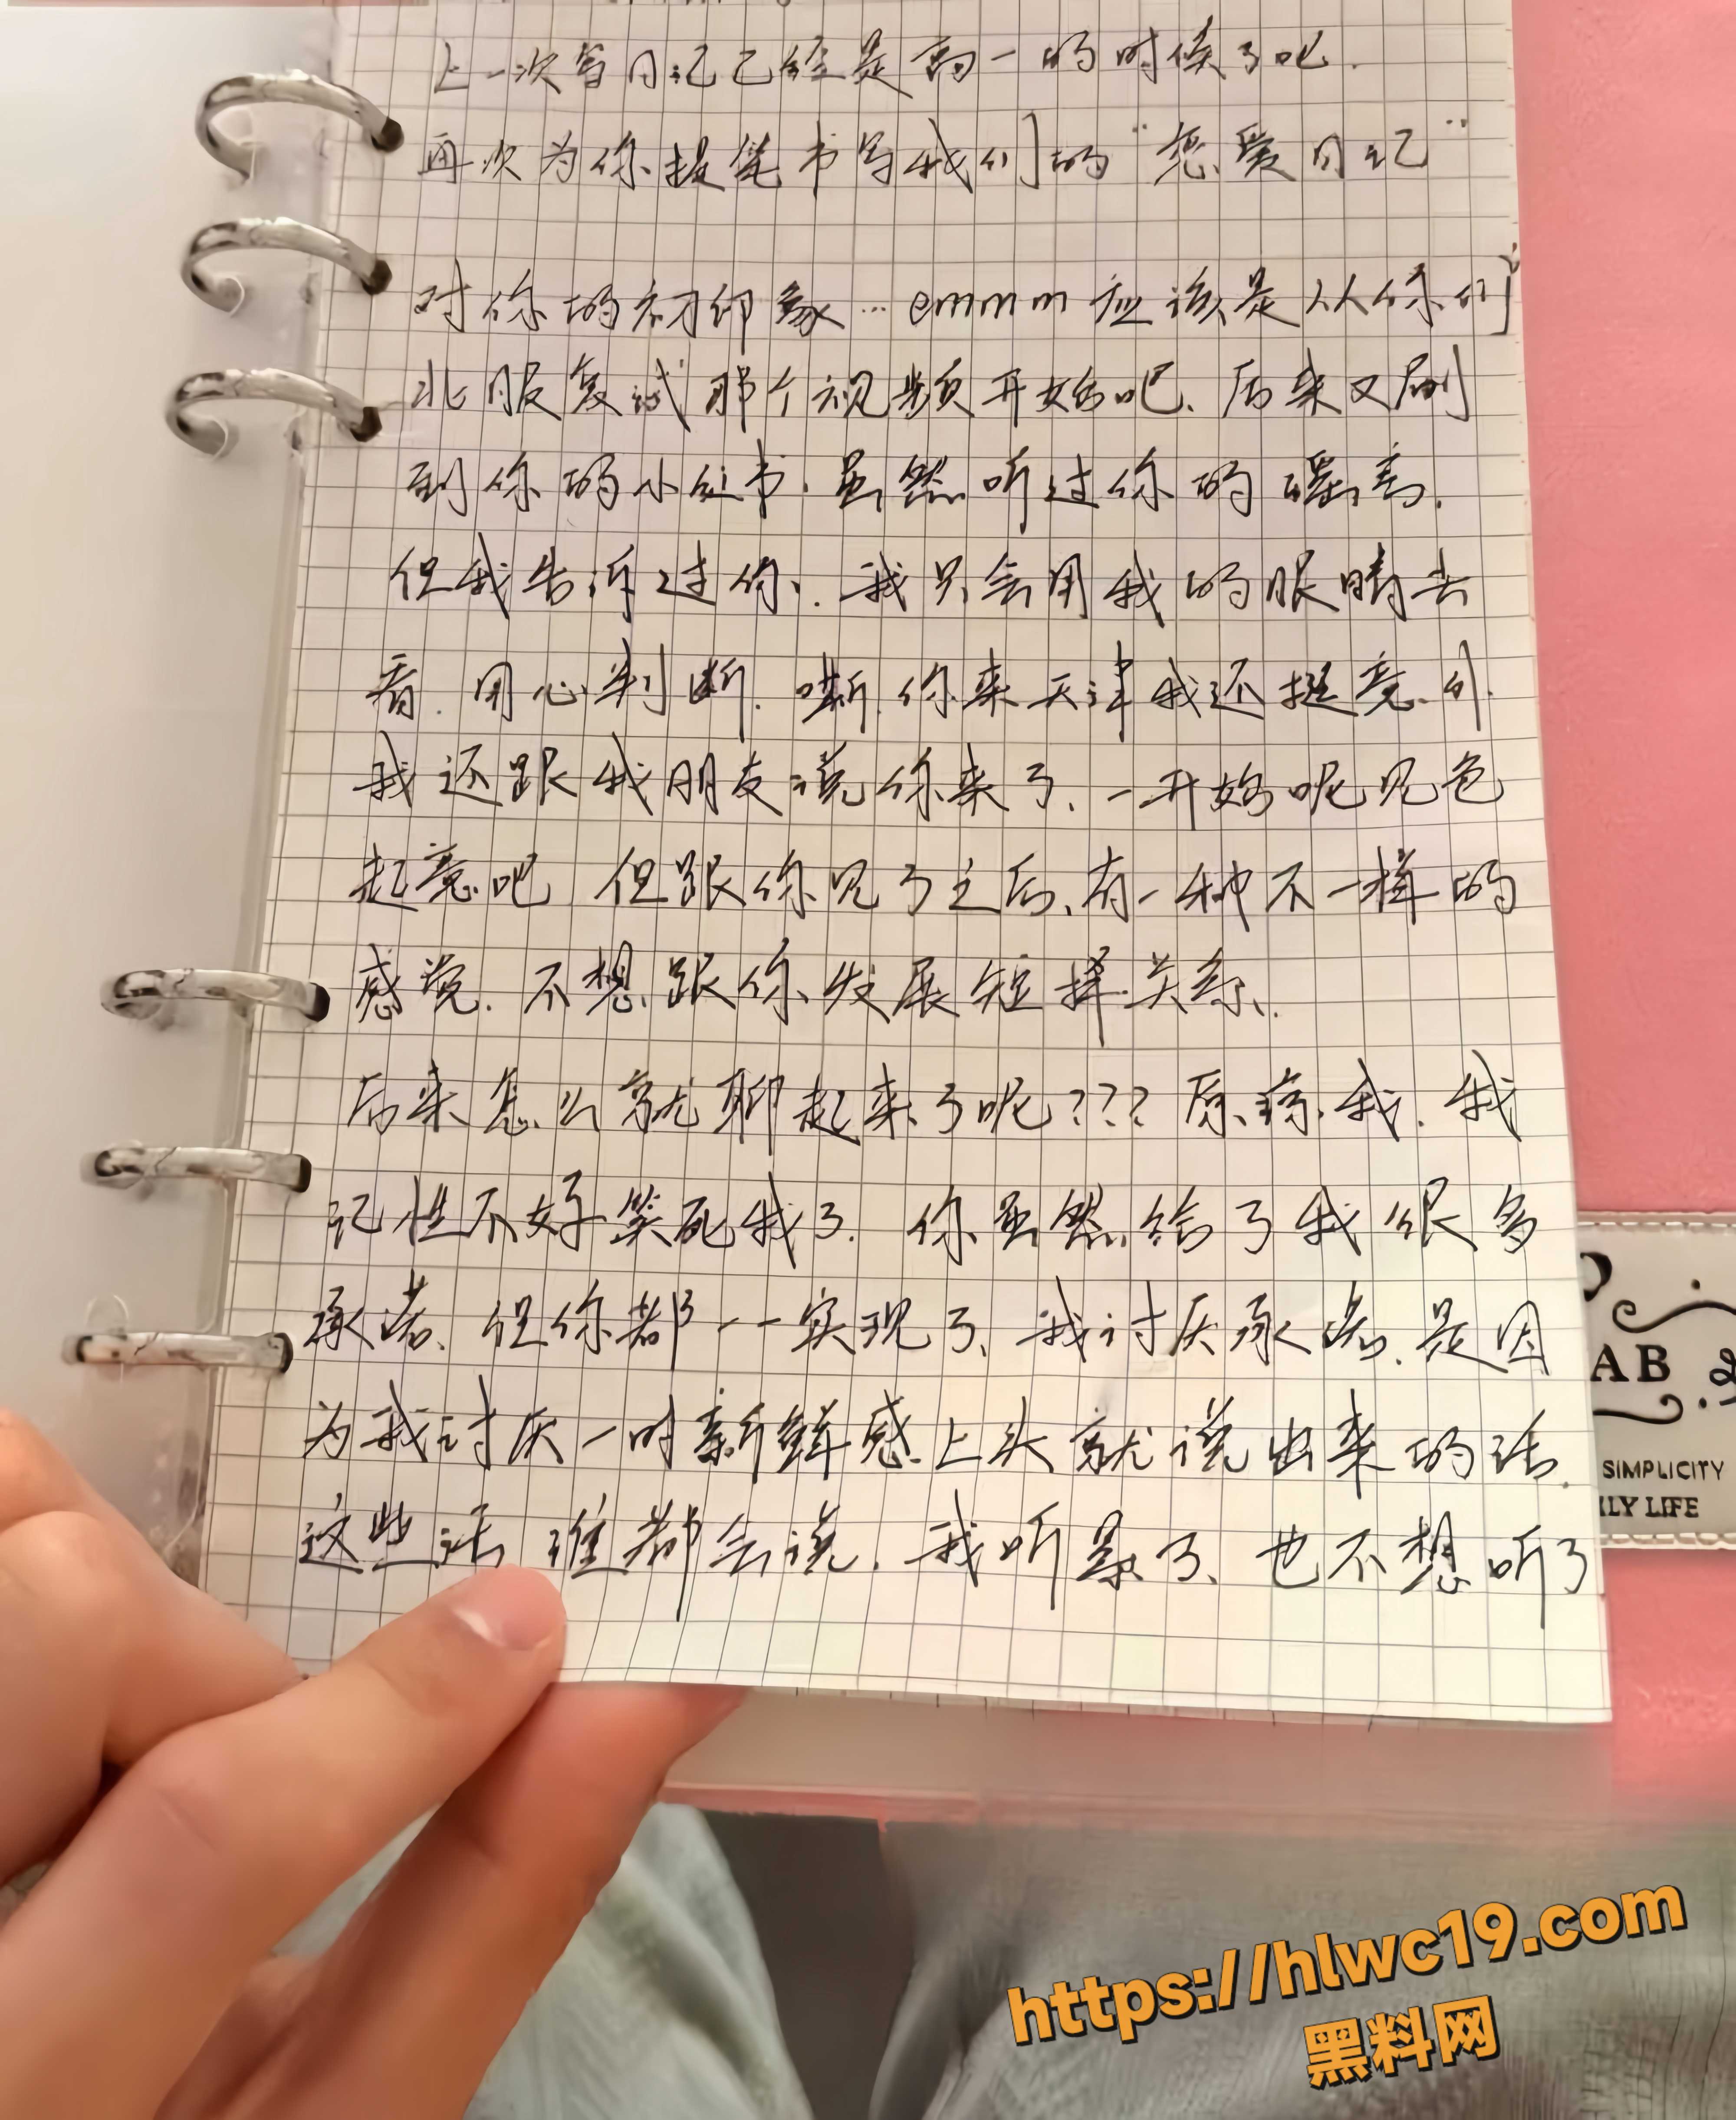 上一次写日记已经是高一的时候了吧.
再次为你提笔书写我们的“恋爱日记”
对你的初印象…emmm应该是从你们
北服复试那个视频开始吧、后来又刷
到你的小红书.虽然听过你的谣言.
但我告诉过你、.我只会用我的眼睛去
看.用心判断.嘶.你来天津我还挺意外.
我还跟我朋友说你来了、一开始呢见色
起意吧 但跟你见了之后、有一种不一样的
感觉.不想跟你发展短择关系.
后来怎么就聊起来了呢???原谅我.我
记性不好笑死我了.你虽然给了我很多
承诺、但你都一一实现了、我讨厌承诺.是因
为我讨厌一时新鲜感上头就说出来的话.
这些话 谁都会说.我听晕了、也不想听了
AB
SIMPLICITY
LY LIFE
https://hlwc19.com
黑料网